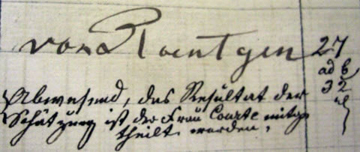 von Roentgen 27
ad 6
Abwesend, das Resultat der 32
Schätzung ist der Frau Courte mitge
theilt worden.